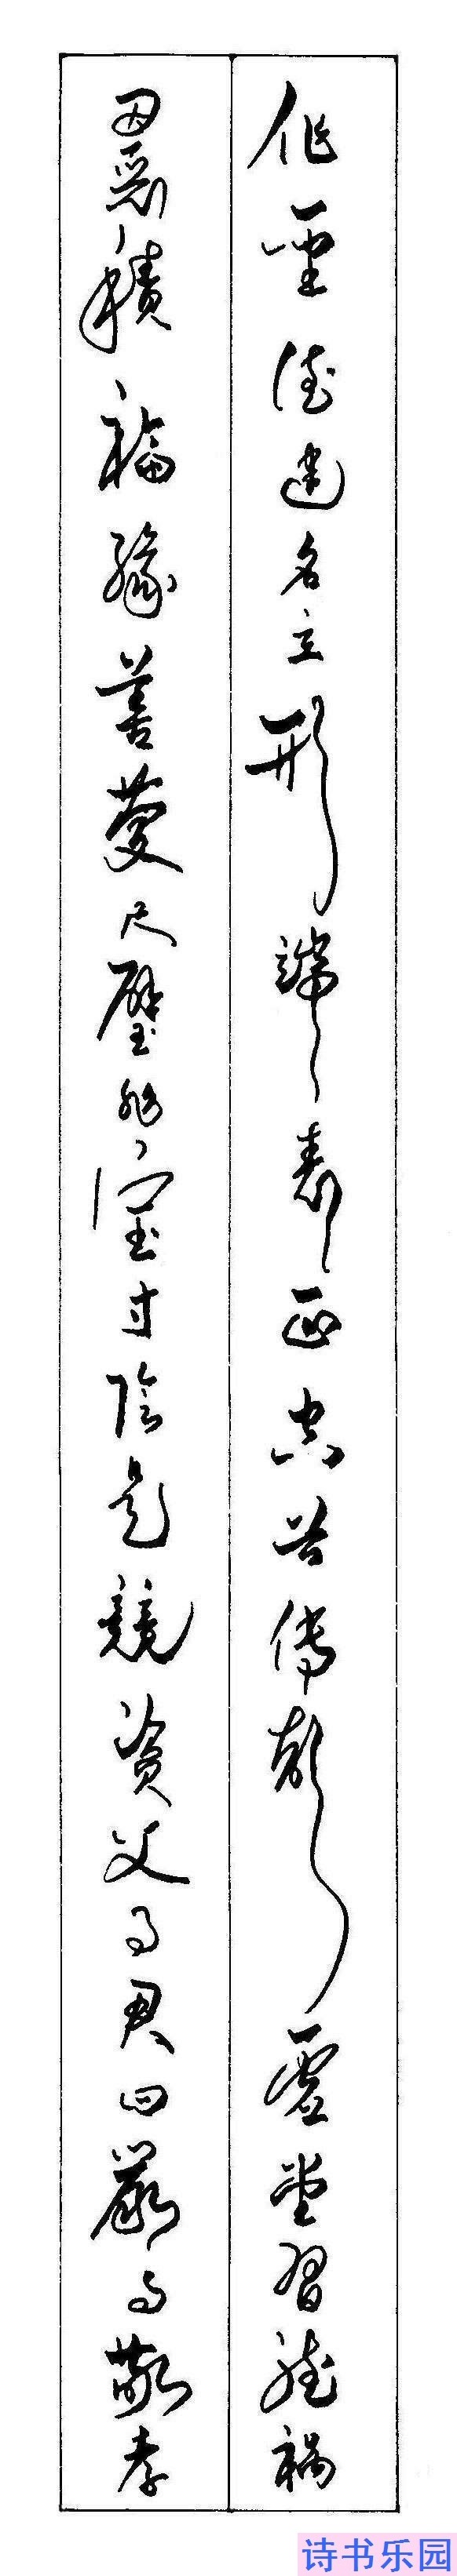 作聖德建名立形端表正空谷傳聲虛堂習聽禍
因惡積福緣善慶尺璧非寶寸陰是競資父事君曰嚴與敬孝
诗书乐园